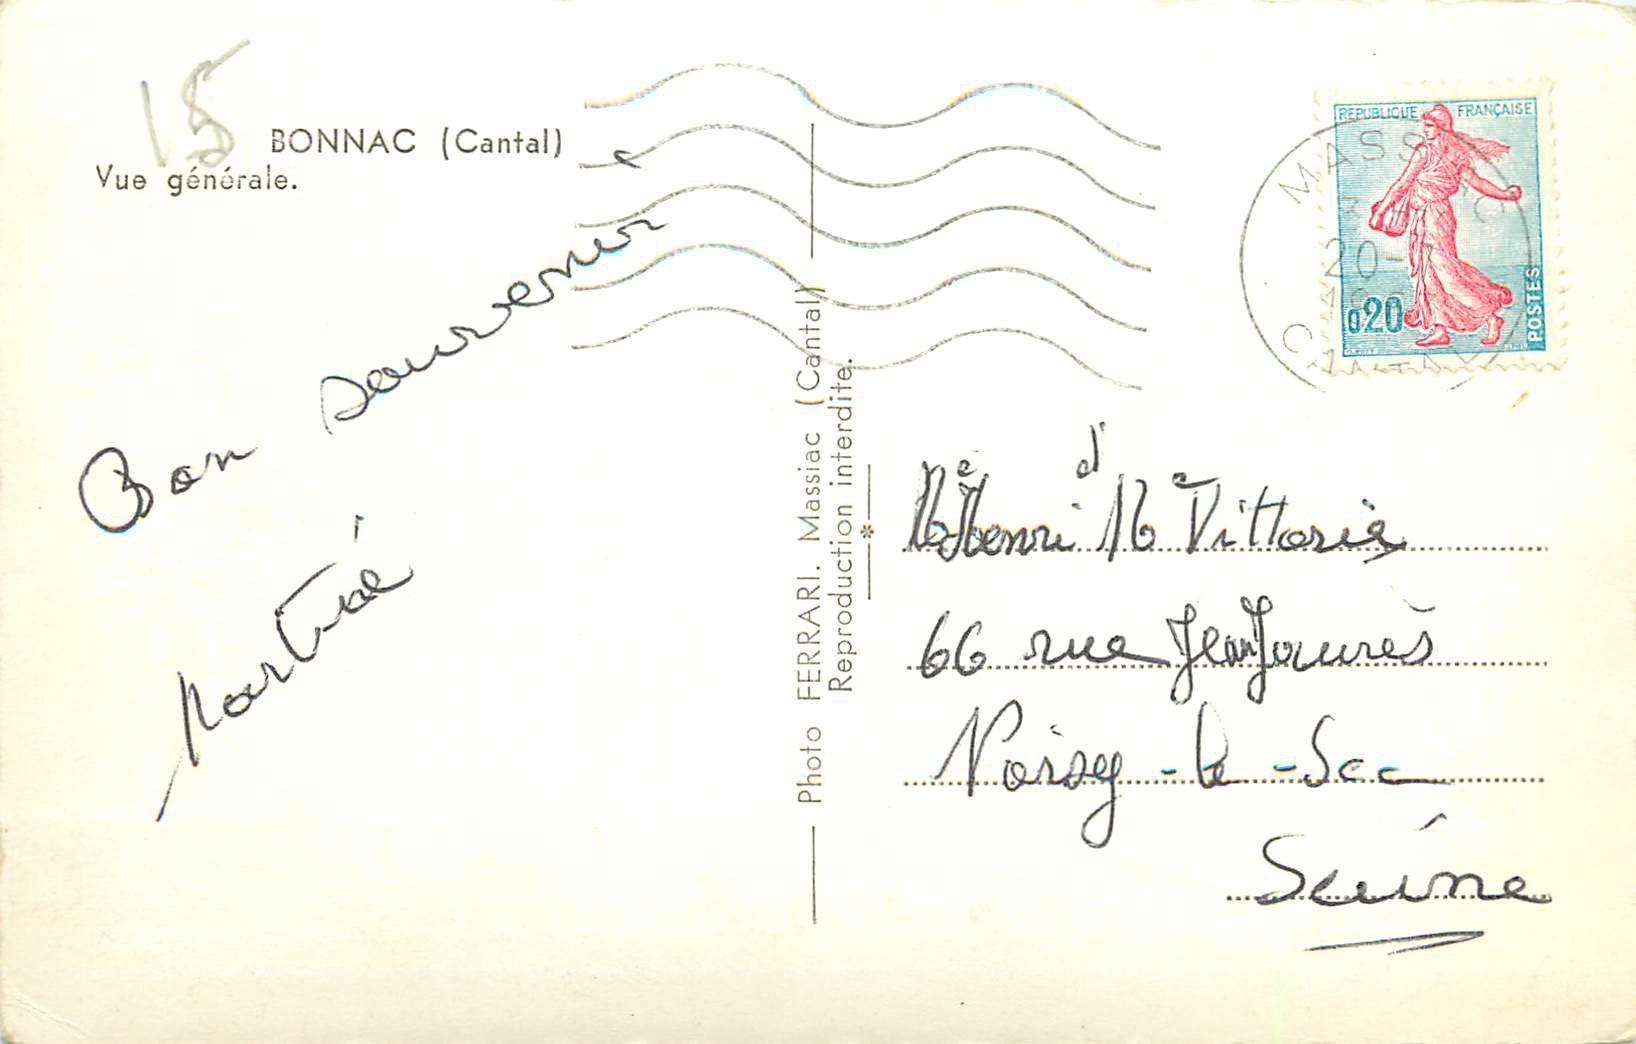 15
BONNAC (Cantal)
Vue générale.
Bon souvenir
Photo FERRARI. Massiac (Cantal)
Reproduction interdite.
REPUBLIQUE FRANÇAISE
0,20
POSTES
MASSIAC
20-7
CANTAL
Henri
66 rue Jean Jaurès
Noisy-le-Sec
Seine